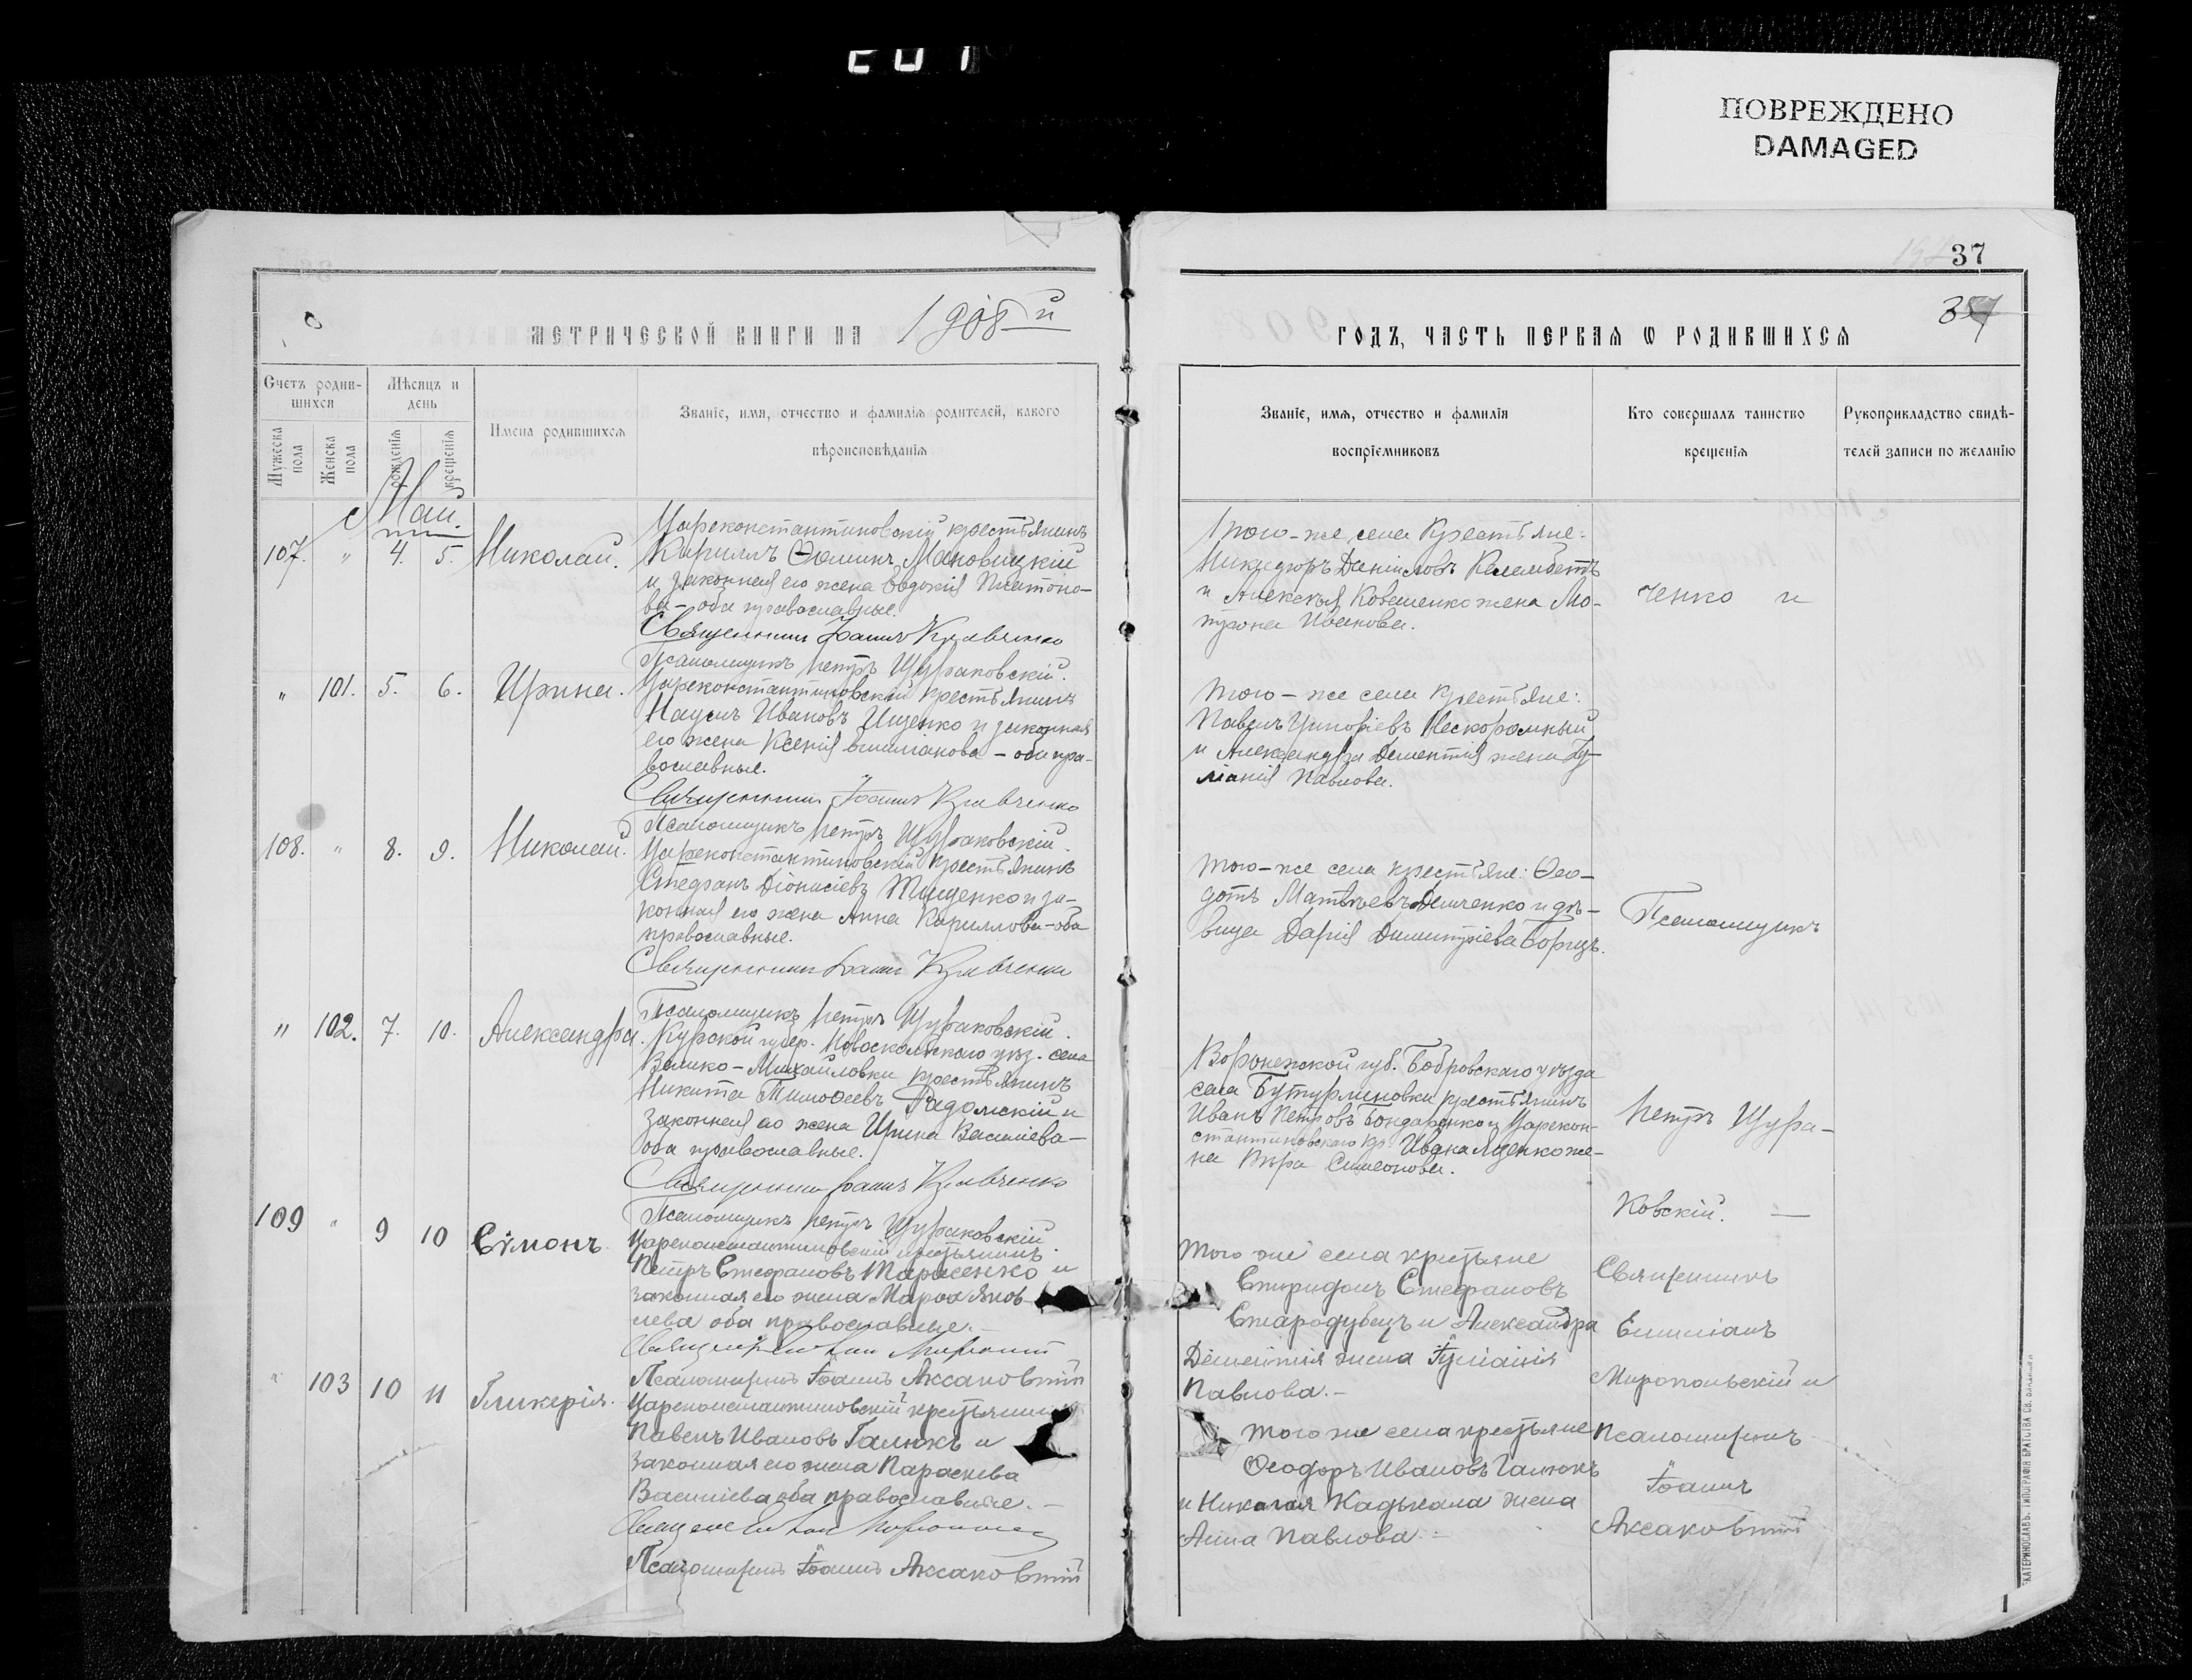 ПОВРЕЖДЕНО
DAMAGED
37
МЕТРИЧЕСКОЙ КНИГИ НА 1908 й
ГОДЪ, ЧАСТЬ ПЕРВАЯ Ѡ РОДИВШИХСЯ
Счетъ родив-
шихся
Мѣсяцъ и
день
Мужеска
пола
Женска
пола
рожденія
крещенія
Имена родившихся
Званіе, имя, отчество и фамилія родителей, какого
вѣроисповѣданія
Званіе, имя, отчество и фамилія
воспріемниковъ
Кто совершалъ таинство
крещенія
Рукоприкладство свидѣ-
телей записи по желанію
Май.
107. " 4. 5. Николай.
Цареконстантиновскій крестьянинъ
Кириллъ Ѳоминъ Маковицкій
и законная его жена Евдокія Платоно-
ва - оба православные.
Священникъ Іоаннъ Кравченко
Псаломщикъ Петръ Щураковскій.
Того-же села крестьяне:
Никифоръ Даніиловъ Келембетъ
и Алексѣя Коваленко жена Мо-
трона Иванова.
ченко и
" 101. 5. 6. Ирина.
Цареконстантиновскій крестьянинъ
Наумъ Ивановъ Ищенко и законная
его жена Ксенія Емиліанова - оба пра-
вославные.
Священникъ Іоаннъ Кравченко
Псаломщикъ Петръ Щураковскій.
Того-же села крестьяне:
Павелъ Григоріевъ Нескоромный
и Александра Дементія жена Іу-
ліанія Павлова.
108. " 8. 9. Николай.
Цареконстантиновскій крестьянинъ
Стефанъ Діонисіевъ Тищенко и за-
конная его жена Анна Кириллова - оба
православные.
Священникъ Іоаннъ Кравченко
Псаломщикъ Петръ Щураковскій.
Того-же села крестьяне: Ѳео-
дотъ Матѳѣевъ Демченко и дѣ-
вица Дарія Димитріева Борщъ.
Псаломщикъ
" 102. 7. 10. Александра.
Курской губер. Новоскольскаго уѣз. села
Велико-Михайловки крестьянинъ
Никита Тимоѳеевъ Радомскій и
законная его жена Ирина Василіева -
оба православные.
Священникъ Іоаннъ Кравченко
Псаломщикъ Петръ Щураковскій.
Воронежской губ. Бобровскаго уѣзда
села Бутурлиновки крестьянинъ
Иванъ Петровъ Бондаренко и Царекон-
стантиновскаго кр. Ивана Яценко же-
на Вѣра Симеонова.
Петръ Щура-
ковскій. —
109 " 9 10 Сѵмонъ.
Цареконстантиновскій крестьянинъ
Петръ Стефановъ Тарасенко и
законная его жена Марѳа Яков
лева оба православные.-
Псаломщикъ Іоаннъ Аксаковскій
Того же села крестьяне
Спиридонъ Стефановъ
Стародубецъ и Александра
Дементія жена Іуліанія
Павлова.-
Священникъ
Емиліанъ
Миропольскій и
" 103 10 11 Гликерія.
Цареконстантиновскій крестьянинъ
Павелъ Ивановъ Галюкъ и
законная его жена Параскева
Василіева оба православные.-
Псаломщикъ Іоаннъ Аксаковскій
Того же села крестьяне
Ѳеодоръ Ивановъ Галюкъ
и Николая Кадькала жена
Анна Павлова.-
Псаломщикъ
Іоаннъ
Аксаковскій
1